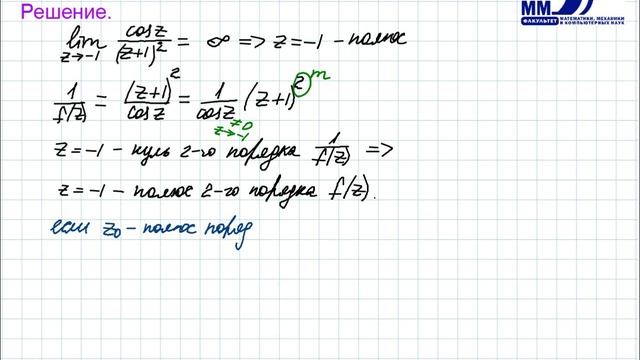 Решение.
lim z→-1 cosz/(z+1)² = ∞ => z=-1 - полюс
1/f(z) = (z+1)²/cosz = 1/cosz (z+1)² m
≠0
z→-1
z=-1 - нуль 2-го порядка 1/f(z) =>
z=-1 - полюс 2-го порядка f(z).
если z₀ - полюс поряд
ММ
ФАКУЛЬТЕТ МАТЕМАТИКИ, МЕХАНИКИ И КОМПЬЮТЕРНЫХ НАУК